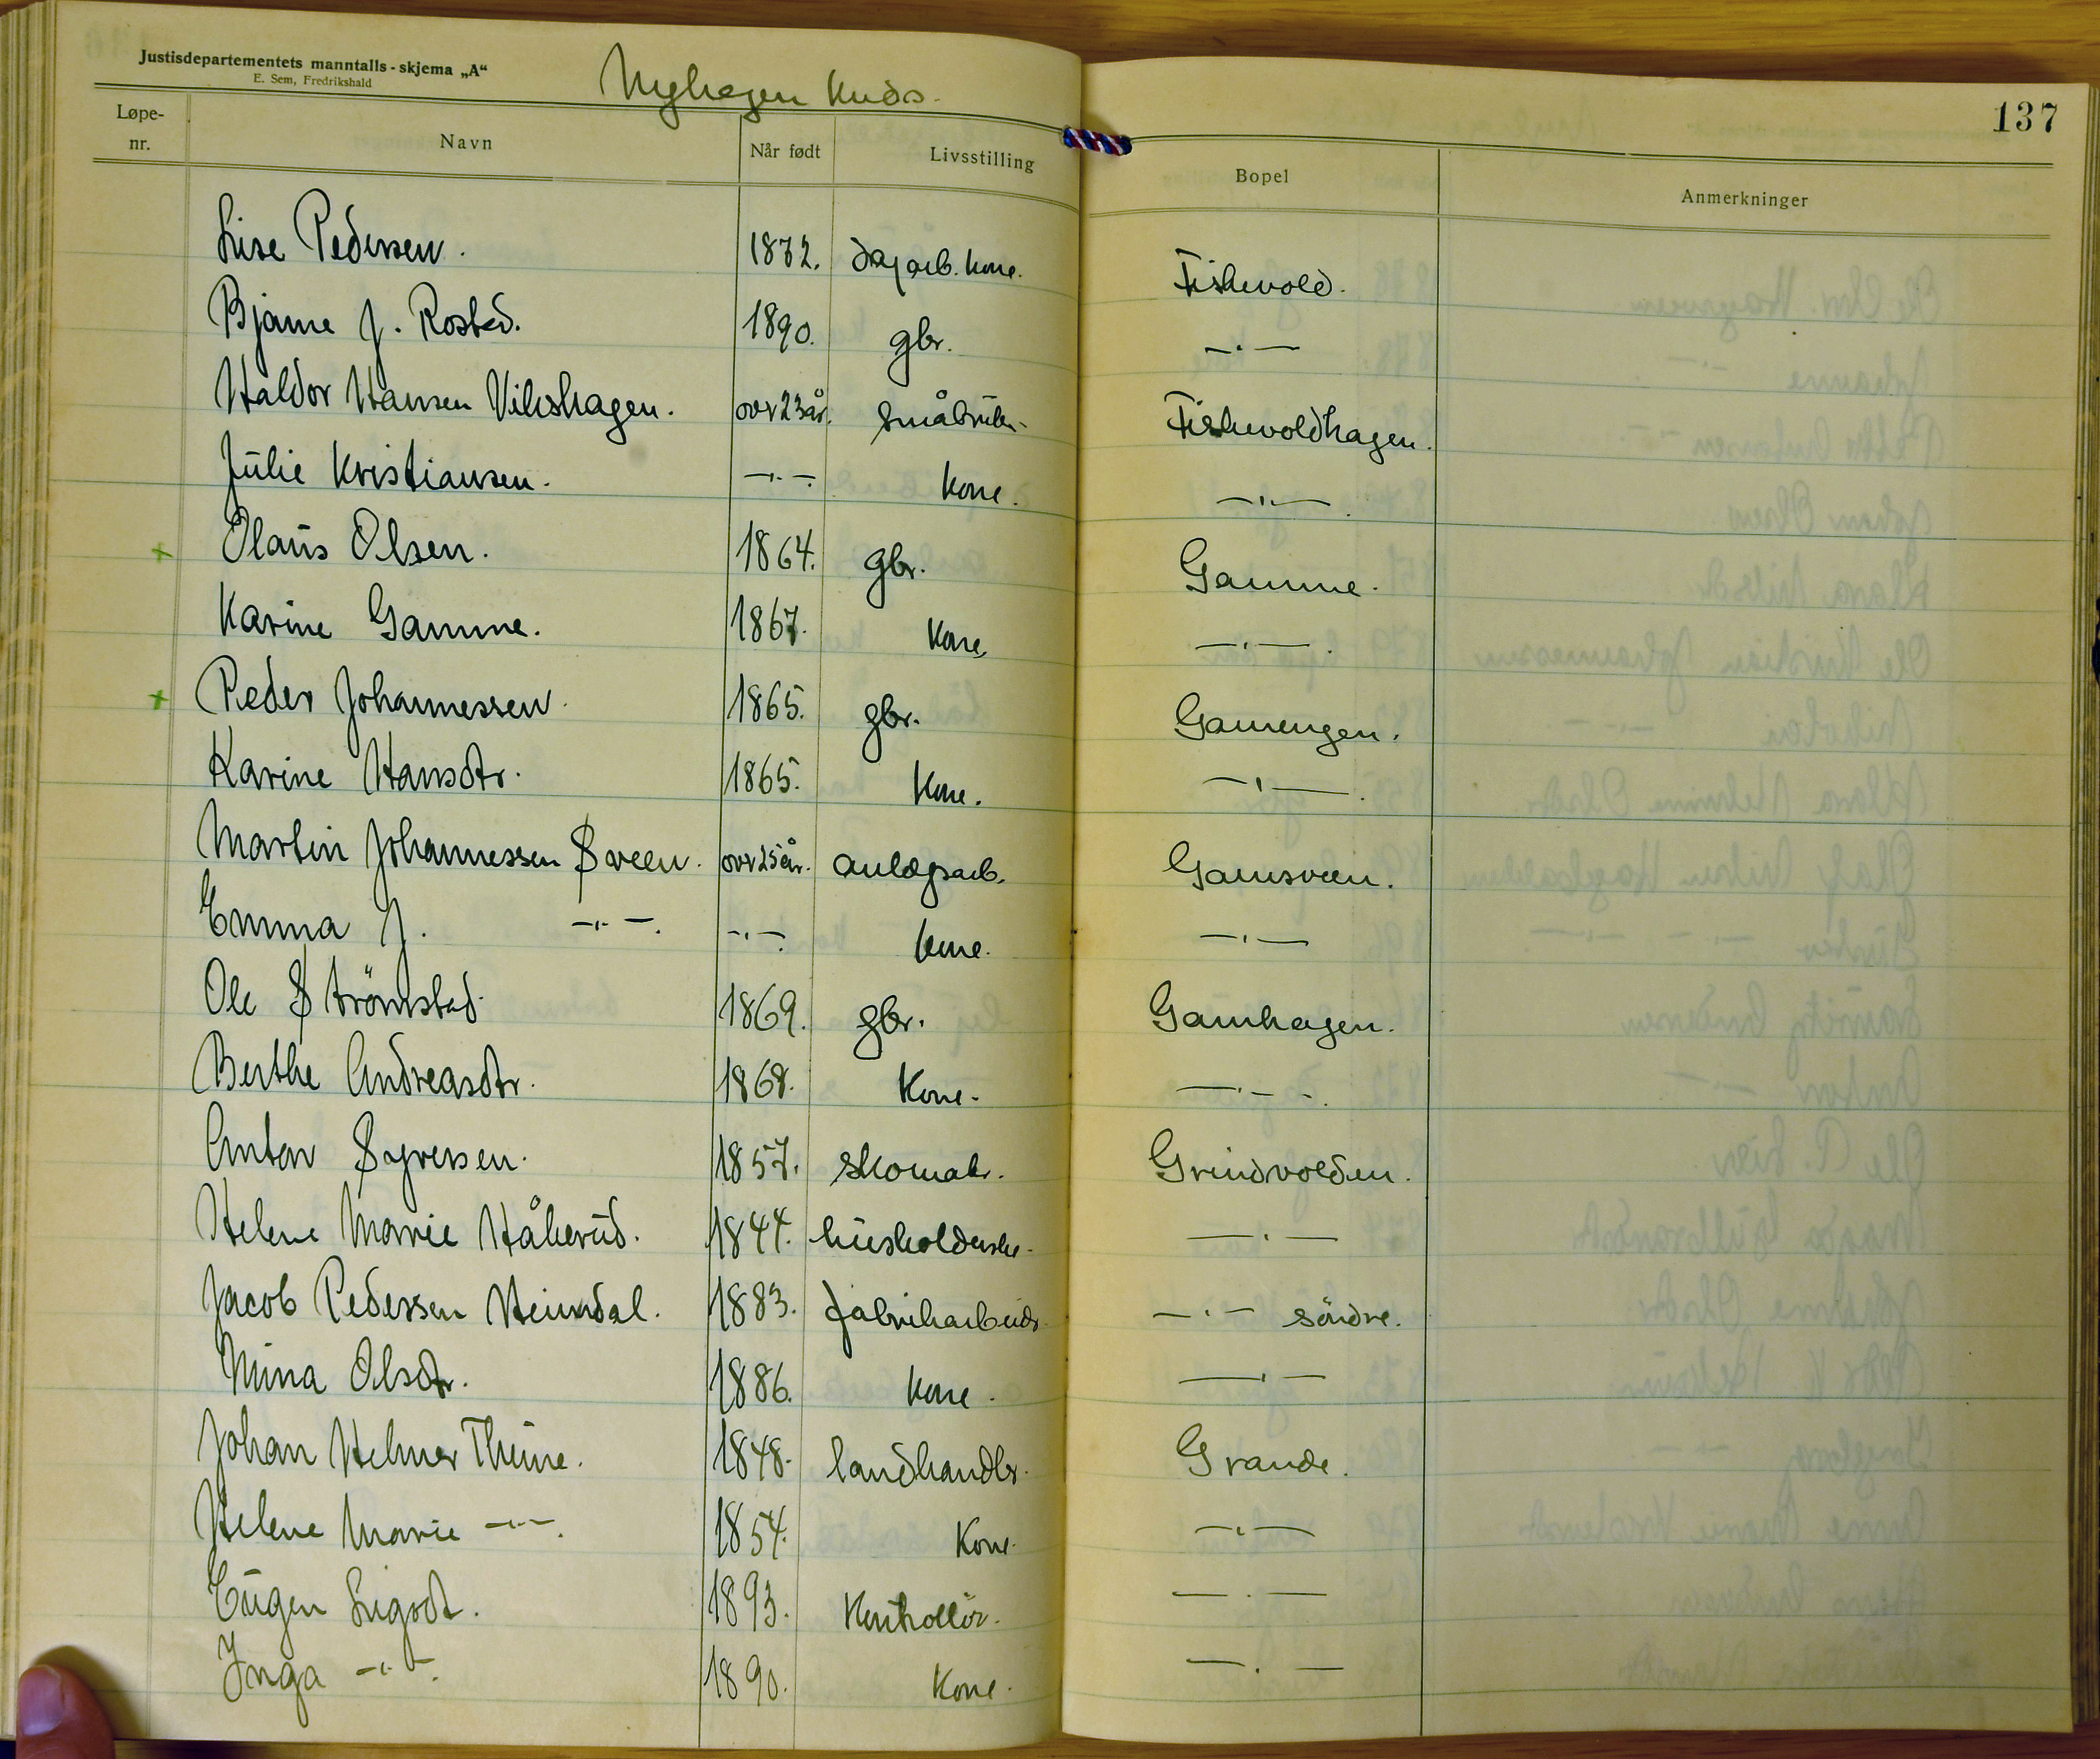 Justisdepartementets manntalls-skjema „A“
E. Sem, Fredrikshald
Nyhagen Krds.
137
Løpe-nr. Navn Når født Livsstilling Bopel Anmerkninger
Lise Pedersen. 1872. dagarb. kone. Fiskevold.
Bjarne J. Rosted. 1890. gbr. —"—
Haldor Hansen Vikshagen. over 23 år. småbruker Fiskevoldhagen.
Julie Kristiansen. —"—. kone. —"—.
+ Olaus Olsen. 1864. gbr. Gamme.
Karine Gamme. 1867. kone —"—.
+ Peder Johannessen. 1865. gbr. Gamengen.
Karine Hansdtr. 1865. kone. —"—.
Martin Johannessen Sveen. over 25 år. anlægsarb. Gamsveen.
Emma J. —"—. —"—. kone. —"—
Ole Strömstad. 1869. gbr. Gamhagen.
Berthe Andreasdtr. 1868. Kone. —"—.
Anton Syversen. 1857. skomakr. Grindvolden.
Helene Marie Håkerud. 1844. husholderske. —"—
Jacob Pedersen Heimdal. 1883. fabrikarbeidr. —"— söndre.
Mina Olsdtr. 1886. kone. —"—
Johan Helmer Thune. 1848. landhandlr. Grande.
Helene Marie —"—. 1854. Kone. —"—
Eugen Ligodt. 1893. Kontrollör. —"—
Inga —"—. 1890. Kone. —"—